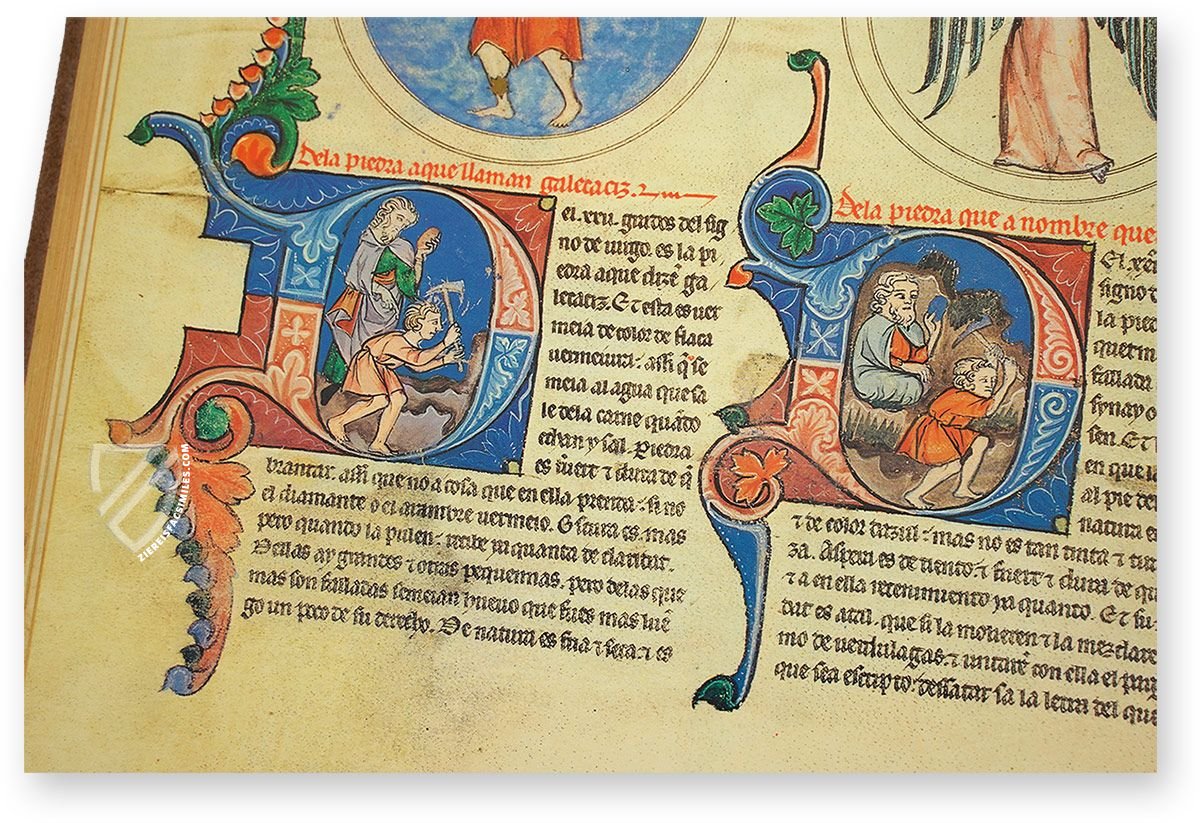 Dela piedra aque llaman galeraciz.
el .xxii. grados del sig
no de uirgo. es la pi
edra aque dizẽ ga
leraciz. Et esta es uer
meia de color de flaca
uermeiura: assi q̃ se
meia al agua que sa
le dela carne quãdo
echan y sal. Piedra
es fuert ⁊ dura de q̃
brantar. assi que no a cosa que en ella prenda: si no
el diamante o el arambre uermeio. Escura es. mas
pero quando la pulen: recibe ya quanta de claridat.
Dellas ay grandes ⁊ otras pequennas. pero delas que
mas son falladas semeian hueuo que fues mas luẽ
go un poco de su derecho. De natura es fria ⁊ seca. ⁊ es
Dela piedra que a nombre que
El
signo d
la pied
quer m
fallada
sen. Et
en que l
al pie de
natura e
⁊ de color dazul: mas no es tan tinta ⁊ tur
za. Aspera es de tiento. ⁊ fuert ⁊ dura de q
⁊ a en ella retenimiento ya quanto. Et su
dat es atal. que si la molieren ⁊ la mezclare
mo de uerdulagas. ⁊ untarẽ con ella el pag
que sea escripto: dessatar sa la letra del que
ZIEREISFACSIMILES.COM